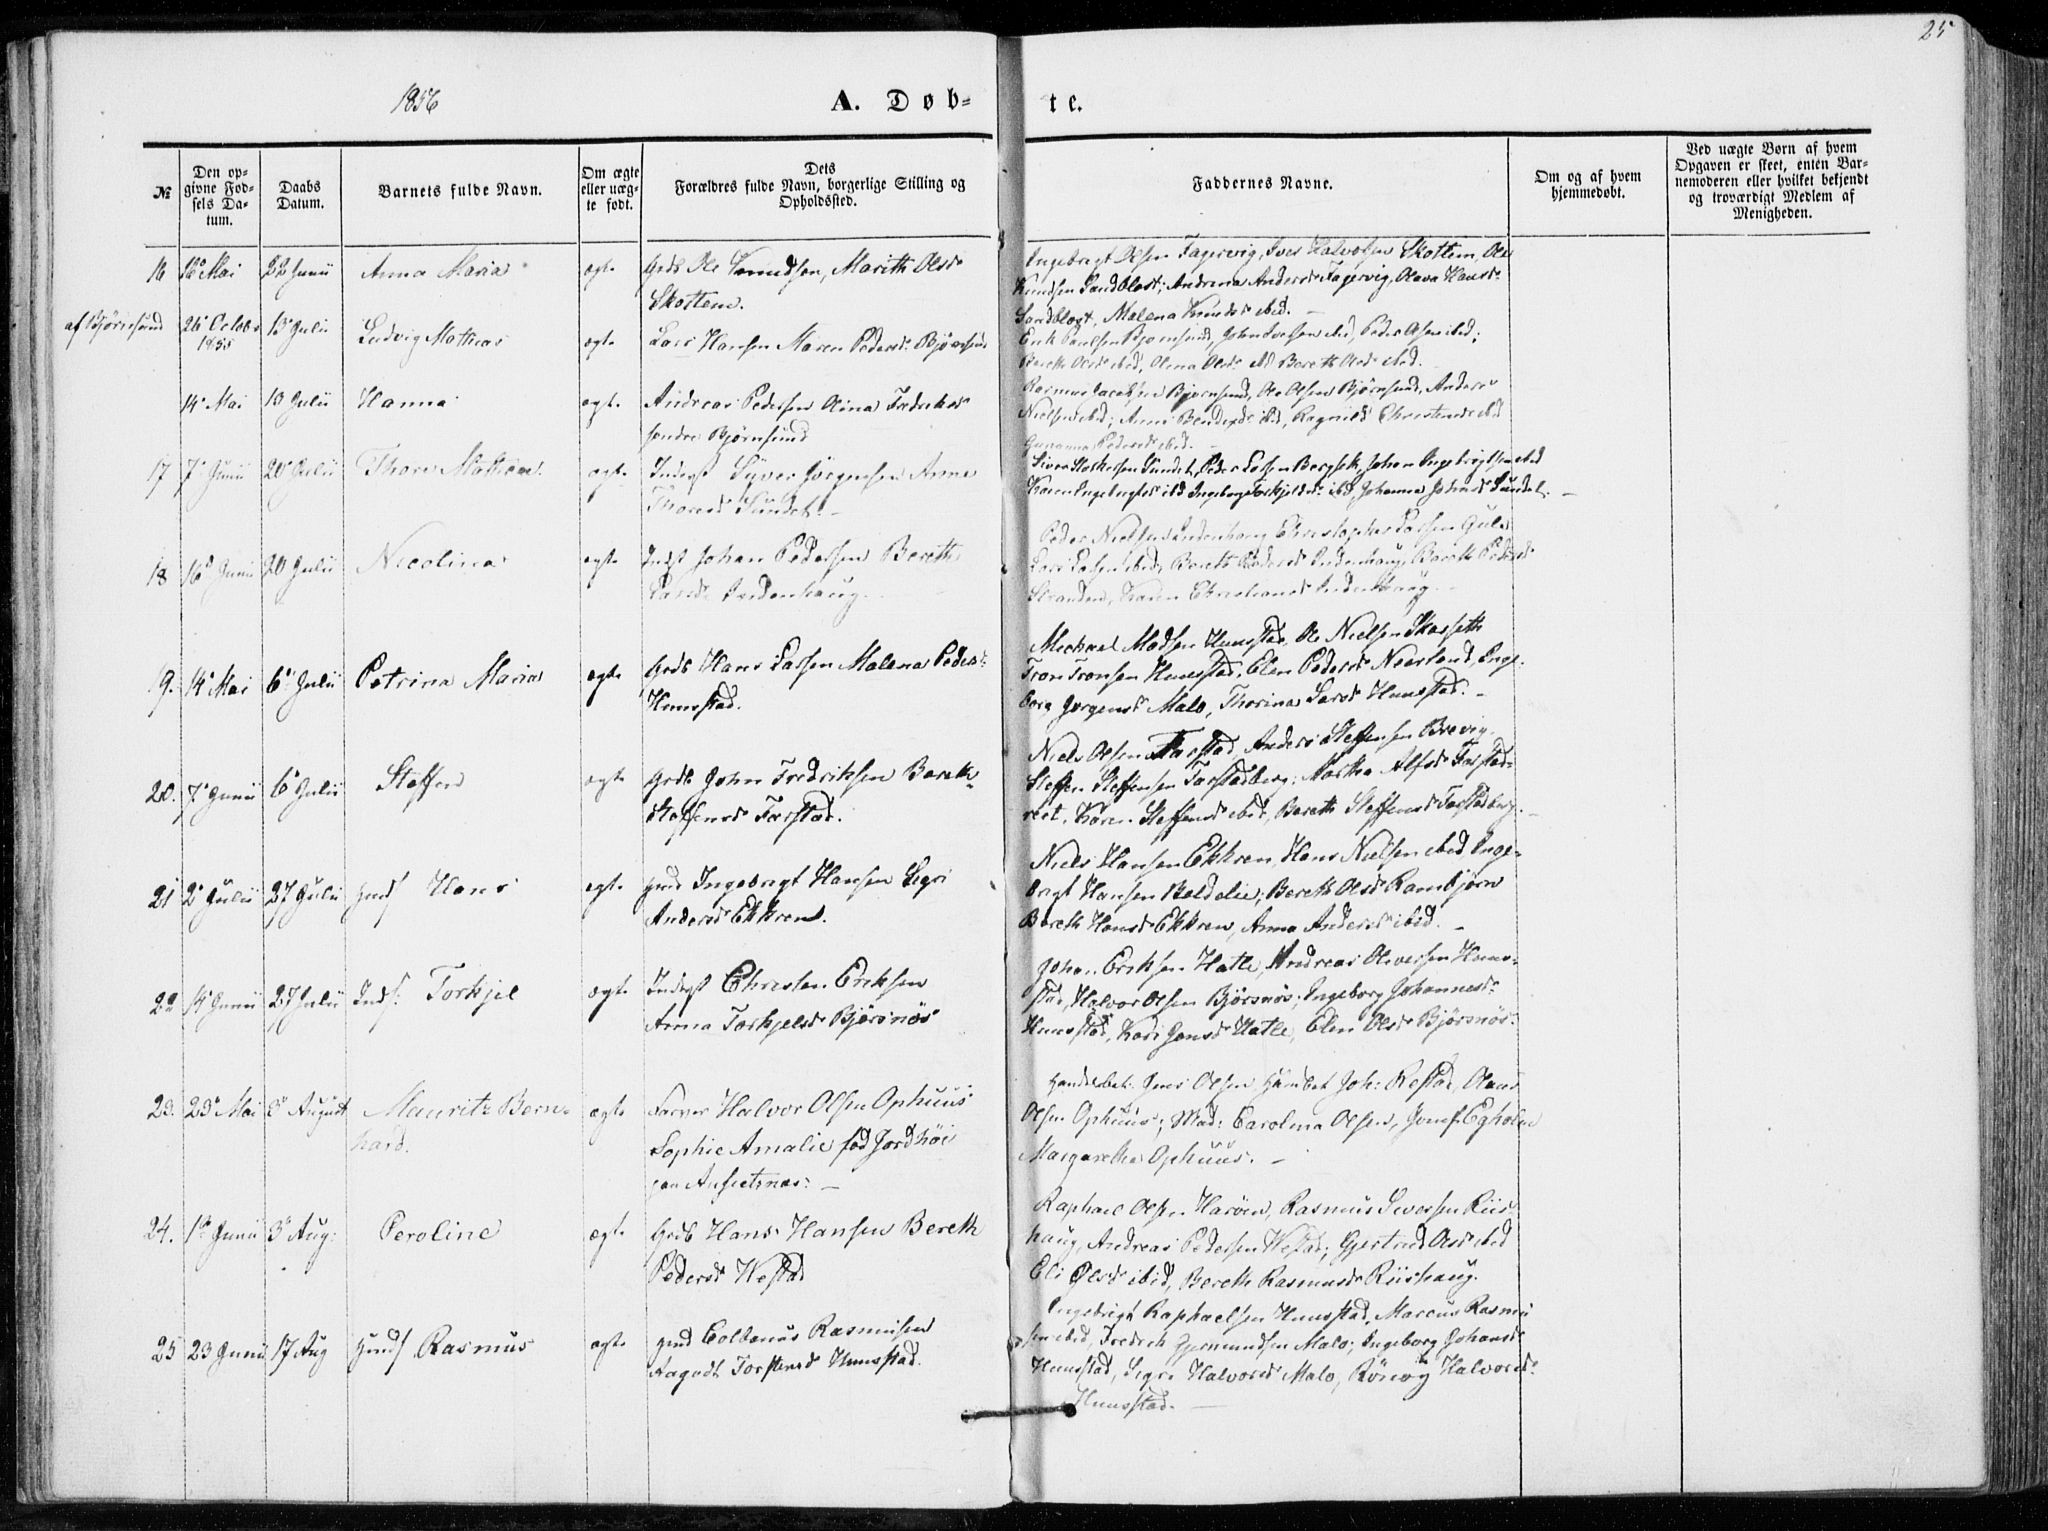 25
1856
A. Døb-
te.
№
Den op-
givne Fød-
sels Da-
tum.
Daabs
Datum.
Barnets fulde Navn.
Om ægte
eller uæg-
te født.
Dets
Forældres fulde Navn, borgerlige Stilling og
Opholdssted.
Faddernes Navne.
Om og af hvem
hjemmedøbt.
Ved uægte Børn af hvem
Opgaven er skeet, enten Bar-
nemoderen eller hvilket bekjendt
og troværdigt Medlem af
Menigheden.
16 Mai 22 Junii Anna Maria ægte Grdb Ole Knudsen, Marith Olsdr
Skottem.
Ingebrigt Olsen Fagervig, Iver Halvorsen Skottem, Ole
Knudsen Sandblost; Andrina Andersdr Fagervig, Olava Hansdr
Sandblost, Malena Knudsdr ibid.
af Bjørnsund 26 Octobr 13 Julii Ludvig Mathias ægte Lars Hansen Maren Pedersdr Bjørnsund
1855
Erik Paulsen Bjørnsund, John Iversen ibid, Peder Olsen ibid;
Bereth Olsdr ibid, Olina Olsdr ibd Bereth Olsdr ibid.
14 Mai 13 Julii Hanna ægte Andreas Pedersen Olina Fredriksdr
søndre Bjørnsund
Rasmus Jacobsen Bjørnsund, Ole Olsen Bjørnsund, Anders
Nielsen ibid; Anne Bendixdr ibid, Ragnild Christensdr ibid
Pedersdr ibid.
17 7 Junii 20 Julii Thore Mathias ægte Inderst Syver Jørgensen Anne
Thoresdr Sundet.
Siver Sundet, Peder Larsen Bergset, Johan Ingebrigtsen ibid
Karen Ingebrigtsdr ibd Ingeborg Torkjelsdr ibd, Johanna Johnsdr Sundet.
18 16 Junii 20 Julii Nicolina ægte Indst Johan Pedersen Bereth
Larsdr Indenhaug.
Peder Nielsen Indenhaug Christopher Larsen Gule
Lars Larsen ibid, Bereth Pedersdr Indenhaug, Bereth Pedersdr
Stranden, Karen Christiansdr Indenhaug.
19. 14 Mai 6 Julii Petrina Maria ægte Grdb Hans Larsen Malena Pedersdr
Hunsstad.
Michael Madsen Hunsstad, Ole Nielsen Skarseth
Tron Tronsen Hunsstad, Elen Pedersdr Neerland, Inge-
borg Jørgensdr Malo, Thorina Larsdr Hunsstad.
20. 7 Junii 6 Julii Steffen ægte Grdb John Fredriksen Bereth
Steffensdr Farstad.
Niels Olsen Farstad Anders Steffensen Brevig.
Steffen Steffensen Farstadberg; Martha Alfsdr Farstad-
reit, Karen Steffensdr ibid, Bereth Steffensdr Farstadberg.
21 2 Julii 27 Julii Hans ægte Ingebrigt Hansen Segri
Andersdr Ekkren.
Niels Hansen Ekkren, Hans Nielsen ibid, Inge-
brigt Hansen Beldelie; Bereth Olsdr Rambjørn
Bereth Hansdr Ekkren, Anna Andersdr ibid.
22 14 Junii 27 Julii Inds: Torkjel ægte Inderst Christen Eriksen
Anna Torkjelsdr Bjørsnøs
Johan Eriksen Hatle, Andreas Oliversen Huns-
stad, Halvor Olsen Bjørsnøs; Ingeborg Johannesdr
Hunsstad, Kari Jonsdr Hatle, Elen Olsdr Bjørsnøs.
23. 23 Mai 3 August Mauritz Bern-
hard. ægte Farver Halvor Olsen Ophuus
Sophie Amalie fød Jordhøi
Handelsbet: Jens Olsen Joh: Restad, Olaus
Olsen Ophuus; Mad: Carolina Olsen, Jomf Egholm
Margaretha Ophuus.
24. 1 Junii 3 Aug: Peroline ægte Grdb Hans Hansen Bereth
Pedersdr Westad
Raphael Olsen Harøen, Rasmus Siversen Riis-
haug, Andreas Pedersen Westad; Gjertrud Olsdr ibid
Eli Olsdr ibid, Bereth Rasmusdr Riishaug.
25 23 Junii 17 Aug Rasmus ægte Colbanus Rasmusen
Aagodt Torstensdr Hunsstad.
Ingebrigt Raphaelsen Hunsstad, Marcus Rasmu
sen ibid, Fredrik Gjermundsen Malo; Ingeborg Johansdr
Hunsstad, Segri Halvorsdr Malo, Rønnøg Halvorsdr
Hunsstad.